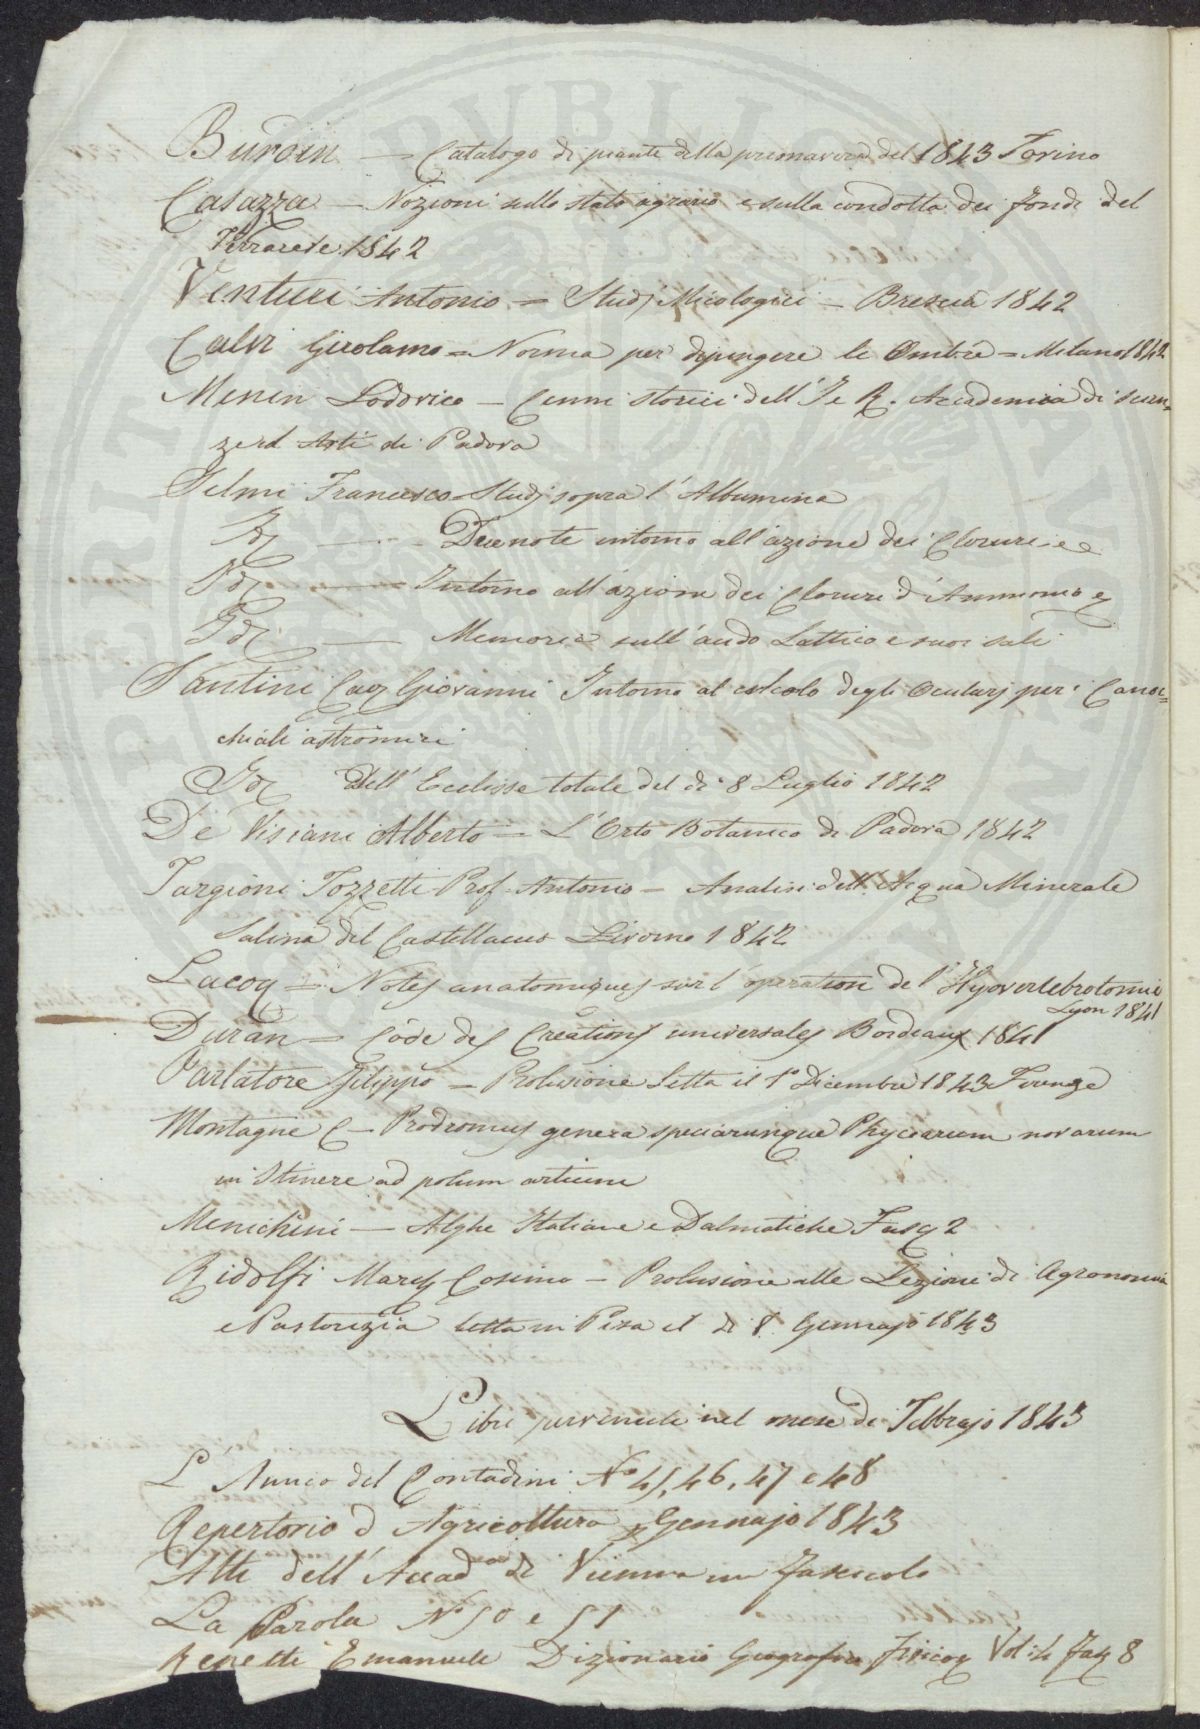 Burdin — Catalogo di piante della primavera del 1843 Torino
Casazza — Nozioni sullo stato agrario e sulla condotta dei fondi del
Ferrarese 1842
Venturi Antonio = Studj Micologici — Brescia 1842
Calvi Girolamo = Norma per dipingere le Ombre = Milano 1842
Menin Lodovico — Cenni storici dell' I e R. Accademia di scien=
ze ed Arti di Padova
Selmi Francesco Studj sopra l'Albumina
Id — Due note intorno all'azione dei Cloruri
Id — Intorno all'azione dei Cloruri d'Ammonio
Id — Memoria sull'acido Lattico e suoi sali
Santini Cav Giovanni Intorno al calcolo degli Oculari per i Canoc=
chiali astronomici
Id dell'Eclisse totale del di 8 Luglio 1842
De Visiani Alberto = L'Orto Botanico di Padova 1842
Targioni Tozzetti Prof. Antonio — Analisi dell'Acqua Minerale
Salina del Castellaccio Livorno 1842
Lacoq = Notes anatomiques sur l'operation de l'Hyovertebrotomie
Lyon 1841
Duran — Code des Creations universales Bordeaux 1841
Parlatore Filippo — Prolusione Letta il 1° Dicembre 1843 Firenze
Montagne C — Prodromus genera specierumque Phycearum novarum
in Itinere ad polum
Menichini — Alghe Italiane e Dalmatiche Fasc 2
Ridolfi March Cosimo — Prolusione alle Lezioni di Agronomia
e Pastorizia letta in Pisa il di 8 Gennajo 1843
Libri pervenuti nel mese di Febbrajo 1843
L'Amico del Contadini N° 45, 46, 47 e 48
Repertorio d'Agricoltura p Gennajo 1843
Atti dell'Accad di Vienna un Fascicolo
La Parola N° 50 e 51
Repetti Emanuele Dizionario Geografico Fisico Vol: 4 Fasc 8